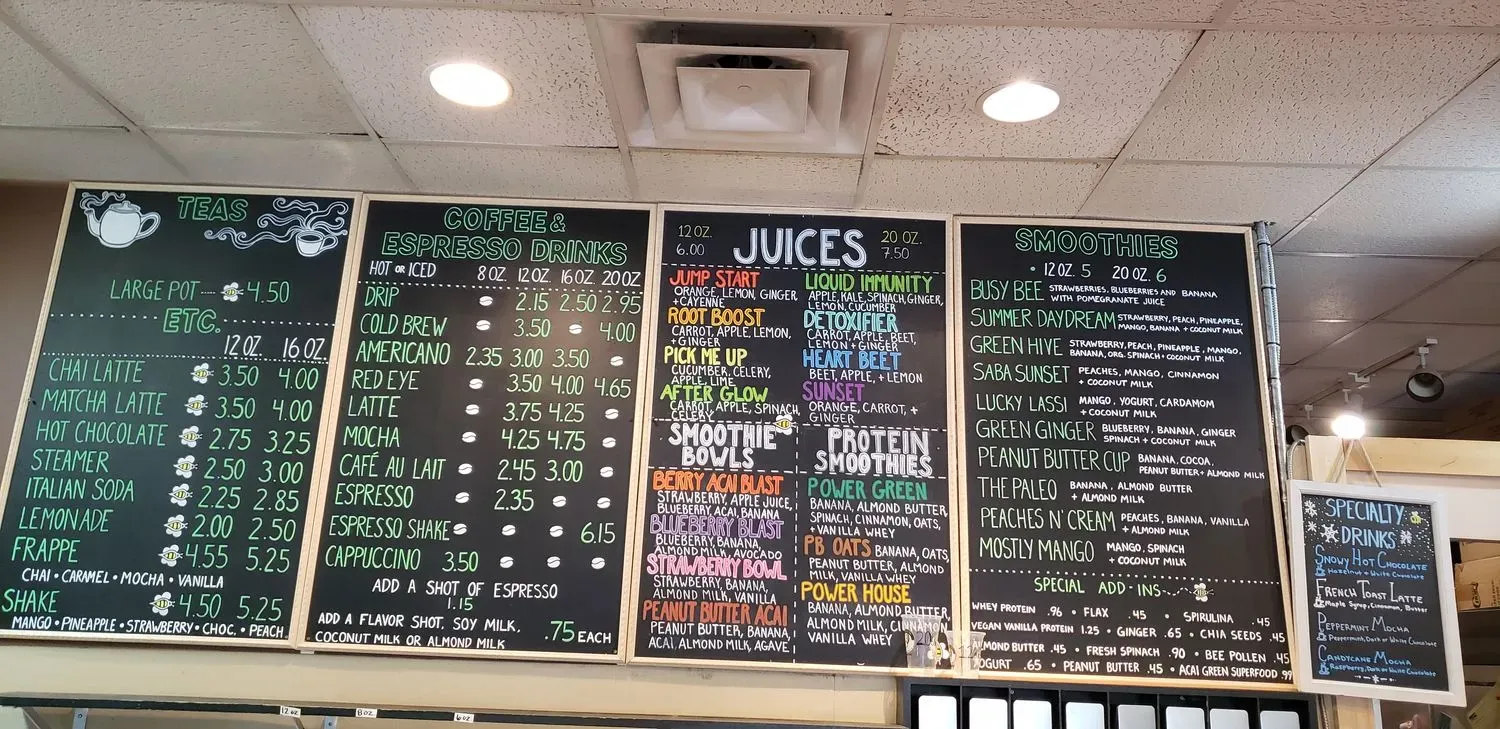 TEAS
LARGE POT 4.50
ETC.
12 OZ. 16 OZ.
CHAI LATTE 3.50 4.00
MATCHA LATTE 3.50 4.00
HOT CHOCOLATE 2.75 3.25
STEAMER 2.50 3.00
ITALIAN SODA 2.25 2.85
LEMONADE 2.00 2.50
FRAPPE 4.55 5.25
CHAI • CARAMEL • MOCHA • VANILLA
SHAKE 4.50 5.25
MANGO • PINEAPPLE • STRAWBERRY • CHOC. • PEACH
COFFEE &
ESPRESSO DRINKS
HOT OR ICED 8 OZ. 12 OZ. 16 OZ. 20 OZ
DRIP 2.15 2.50 2.95
COLD BREW 3.50 4.00
AMERICANO 2.35 3.00 3.50
RED EYE 3.50 4.00 4.65
LATTE 3.75 4.25
MOCHA 4.25 4.75
CAFÉ AU LAIT 2.45 3.00
ESPRESSO 2.35
ESPRESSO SHAKE 6.15
CAPPUCCINO 3.50
ADD A SHOT OF ESPRESSO
1.15
ADD A FLAVOR SHOT, SOY MILK,
COCONUT MILK OR ALMOND MILK .75 EACH
12 OZ. 6.00
JUICES
20 OZ. 7.50
JUMP START
ORANGE, LEMON, GINGER
+ CAYENNE
ROOT BOOST
CARROT, APPLE, LEMON,
+ GINGER
PICK ME UP
CUCUMBER, CELERY,
APPLE, LIME
AFTER GLOW
CARROT, APPLE, SPINACH,
CELERY
LIQUID IMMUNITY
APPLE, KALE, SPINACH, GINGER,
LEMON, CUCUMBER
DETOXIFIER
CARROT, APPLE, BEET,
LEMON + GINGER
HEART BEET
BEET, APPLE, + LEMON
SUNSET
ORANGE, CARROT, +
GINGER
SMOOTHIE
BOWLS
BERRY ACAI BLAST
STRAWBERRY, APPLE JUICE,
BLUEBERRY, ACAI, BANANA
BLUEBERRY BLAST
BLUEBERRY, BANANA,
ALMOND MILK, AVOCADO
STRAWBERRY BOWL
STRAWBERRY, BANANA,
ALMOND MILK, VANILLA
PEANUT BUTTER ACAI
PEANUT BUTTER, BANANA,
ACAI, ALMOND MILK, AGAVE
PROTEIN
SMOOTHIES
POWER GREEN
BANANA, ALMOND BUTTER,
SPINACH, CINNAMON, OATS,
+ VANILLA WHEY
PB OATS BANANA, OATS,
PEANUT BUTTER, ALMOND
MILK, VANILLA WHEY
POWER HOUSE
BANANA, ALMOND BUTTER,
ALMOND MILK, CINNAMON,
VANILLA WHEY
SMOOTHIES
• 12 OZ. 5 20 OZ. 6
BUSY BEE STRAWBERRIES, BLUEBERRIES AND BANANA
WITH POMEGRANATE JUICE
SUMMER DAYDREAM STRAWBERRY, PEACH, PINEAPPLE,
MANGO, BANANA + COCONUT MILK
GREEN HIVE STRAWBERRY, PEACH, PINEAPPLE, MANGO,
BANANA, ORG. SPINACH + COCONUT MILK
SABA SUNSET PEACHES, MANGO, CINNAMON
+ COCONUT MILK
LUCKY LASSI MANGO, YOGURT, CARDAMOM
+ COCONUT MILK
GREEN GINGER BLUEBERRY, BANANA, GINGER
SPINACH + COCONUT MILK
PEANUT BUTTER CUP BANANA, COCOA,
PEANUT BUTTER + ALMOND MILK
THE PALEO BANANA, ALMOND BUTTER
+ ALMOND MILK
PEACHES N' CREAM PEACHES, BANANA, VANILLA
+ ALMOND MILK
MOSTLY MANGO MANGO, SPINACH
+ COCONUT MILK
SPECIAL ADD-INS
WHEY PROTEIN .96 • FLAX .45 • SPIRULINA .45
VEGAN VANILLA PROTEIN 1.25 • GINGER .65 • CHIA SEEDS .45
ALMOND BUTTER .45 • FRESH SPINACH .90 • BEE POLLEN .45
YOGURT .65 • PEANUT BUTTER .45 • ACAI GREEN SUPERFOOD .99
SPECIALTY
DRINKS
SNOWY HOT CHOCOLATE
Hazelnut + White Chocolate
FRENCH TOAST LATTE
Maple Syrup, Cinnamon, Butter
PEPPERMINT MOCHA
Peppermint, Dark or White Chocolate
CANDYCANE MOCHA
Raspberry, Dark or White Chocolate
12 oz
8 oz
6 oz